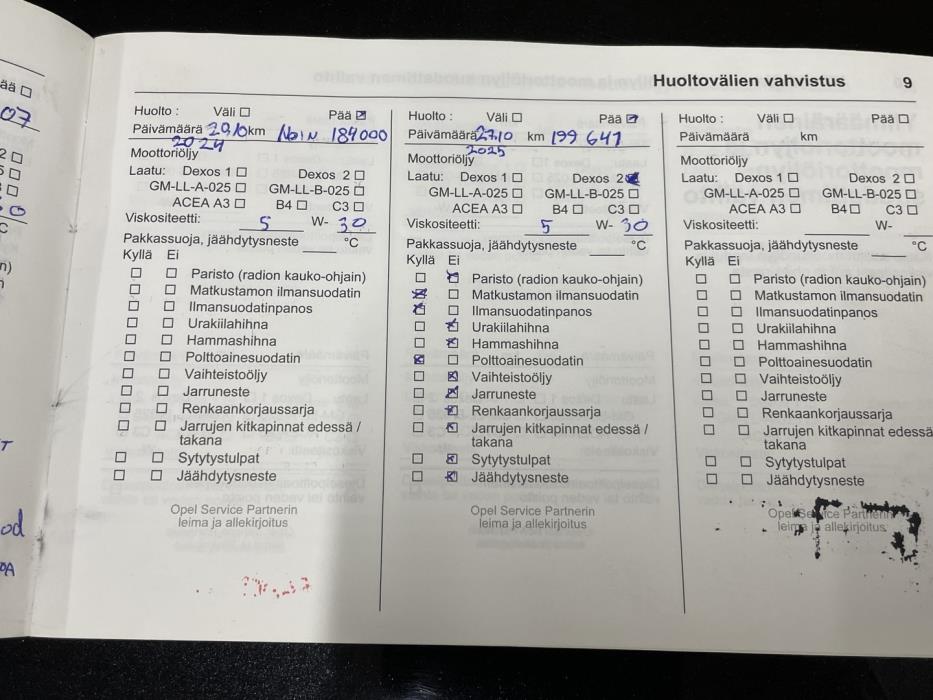 ää
07
2
5
3
50
C
n)
T
od
DA
Huoltovälien vahvistus 9
Huolto : Väli Pää
Päivämäärä 29.10 km Noin 184000
2024
Moottoriöljy
Laatu: Dexos 1 Dexos 2
GM-LL-A-025 GM-LL-B-025
ACEA A3 B4 C3
Viskositeetti: 5 W- 30
Pakkassuoja, jäähdytysneste °C
Kyllä Ei
Paristo (radion kauko-ohjain)
Matkustamon ilmansuodatin
Ilmansuodatinpanos
Urakiilahihna
Hammashihna
Polttoainesuodatin
Vaihteistoöljy
Jarruneste
Renkaankorjaussarja
Jarrujen kitkapinnat edessä /
takana
Sytytystulpat
Jäähdytysneste
Opel Service Partnerin
leima ja allekirjoitus
Huolto : Väli Pää
Päivämäärä 27.10 km 199 647
2025
Moottoriöljy
Laatu: Dexos 1 Dexos 2
GM-LL-A-025 GM-LL-B-025
ACEA A3 B4 C3
Viskositeetti: 5 W- 30
Pakkassuoja, jäähdytysneste °C
Kyllä Ei
Paristo (radion kauko-ohjain)
Matkustamon ilmansuodatin
Ilmansuodatinpanos
Urakiilahihna
Hammashihna
Polttoainesuodatin
Vaihteistoöljy
Jarruneste
Renkaankorjaussarja
Jarrujen kitkapinnat edessä /
takana
Sytytystulpat
Jäähdytysneste
Opel Service Partnerin
leima ja allekirjoitus
Huolto : Väli Pää
Päivämäärä km
Moottoriöljy
Laatu: Dexos 1 Dexos 2
GM-LL-A-025 GM-LL-B-025
ACEA A3 B4 C3
Viskositeetti: W-
Pakkassuoja, jäähdytysneste °C
Kyllä Ei
Paristo (radion kauko-ohjain)
Matkustamon ilmansuodatin
Ilmansuodatinpanos
Urakiilahihna
Hammashihna
Polttoainesuodatin
Vaihteistoöljy
Jarruneste
Renkaankorjaussarja
Jarrujen kitkapinnat edessä
takana
Sytytystulpat
Jäähdytysneste
Opel Service Partnerin
leima ja allekirjoitus